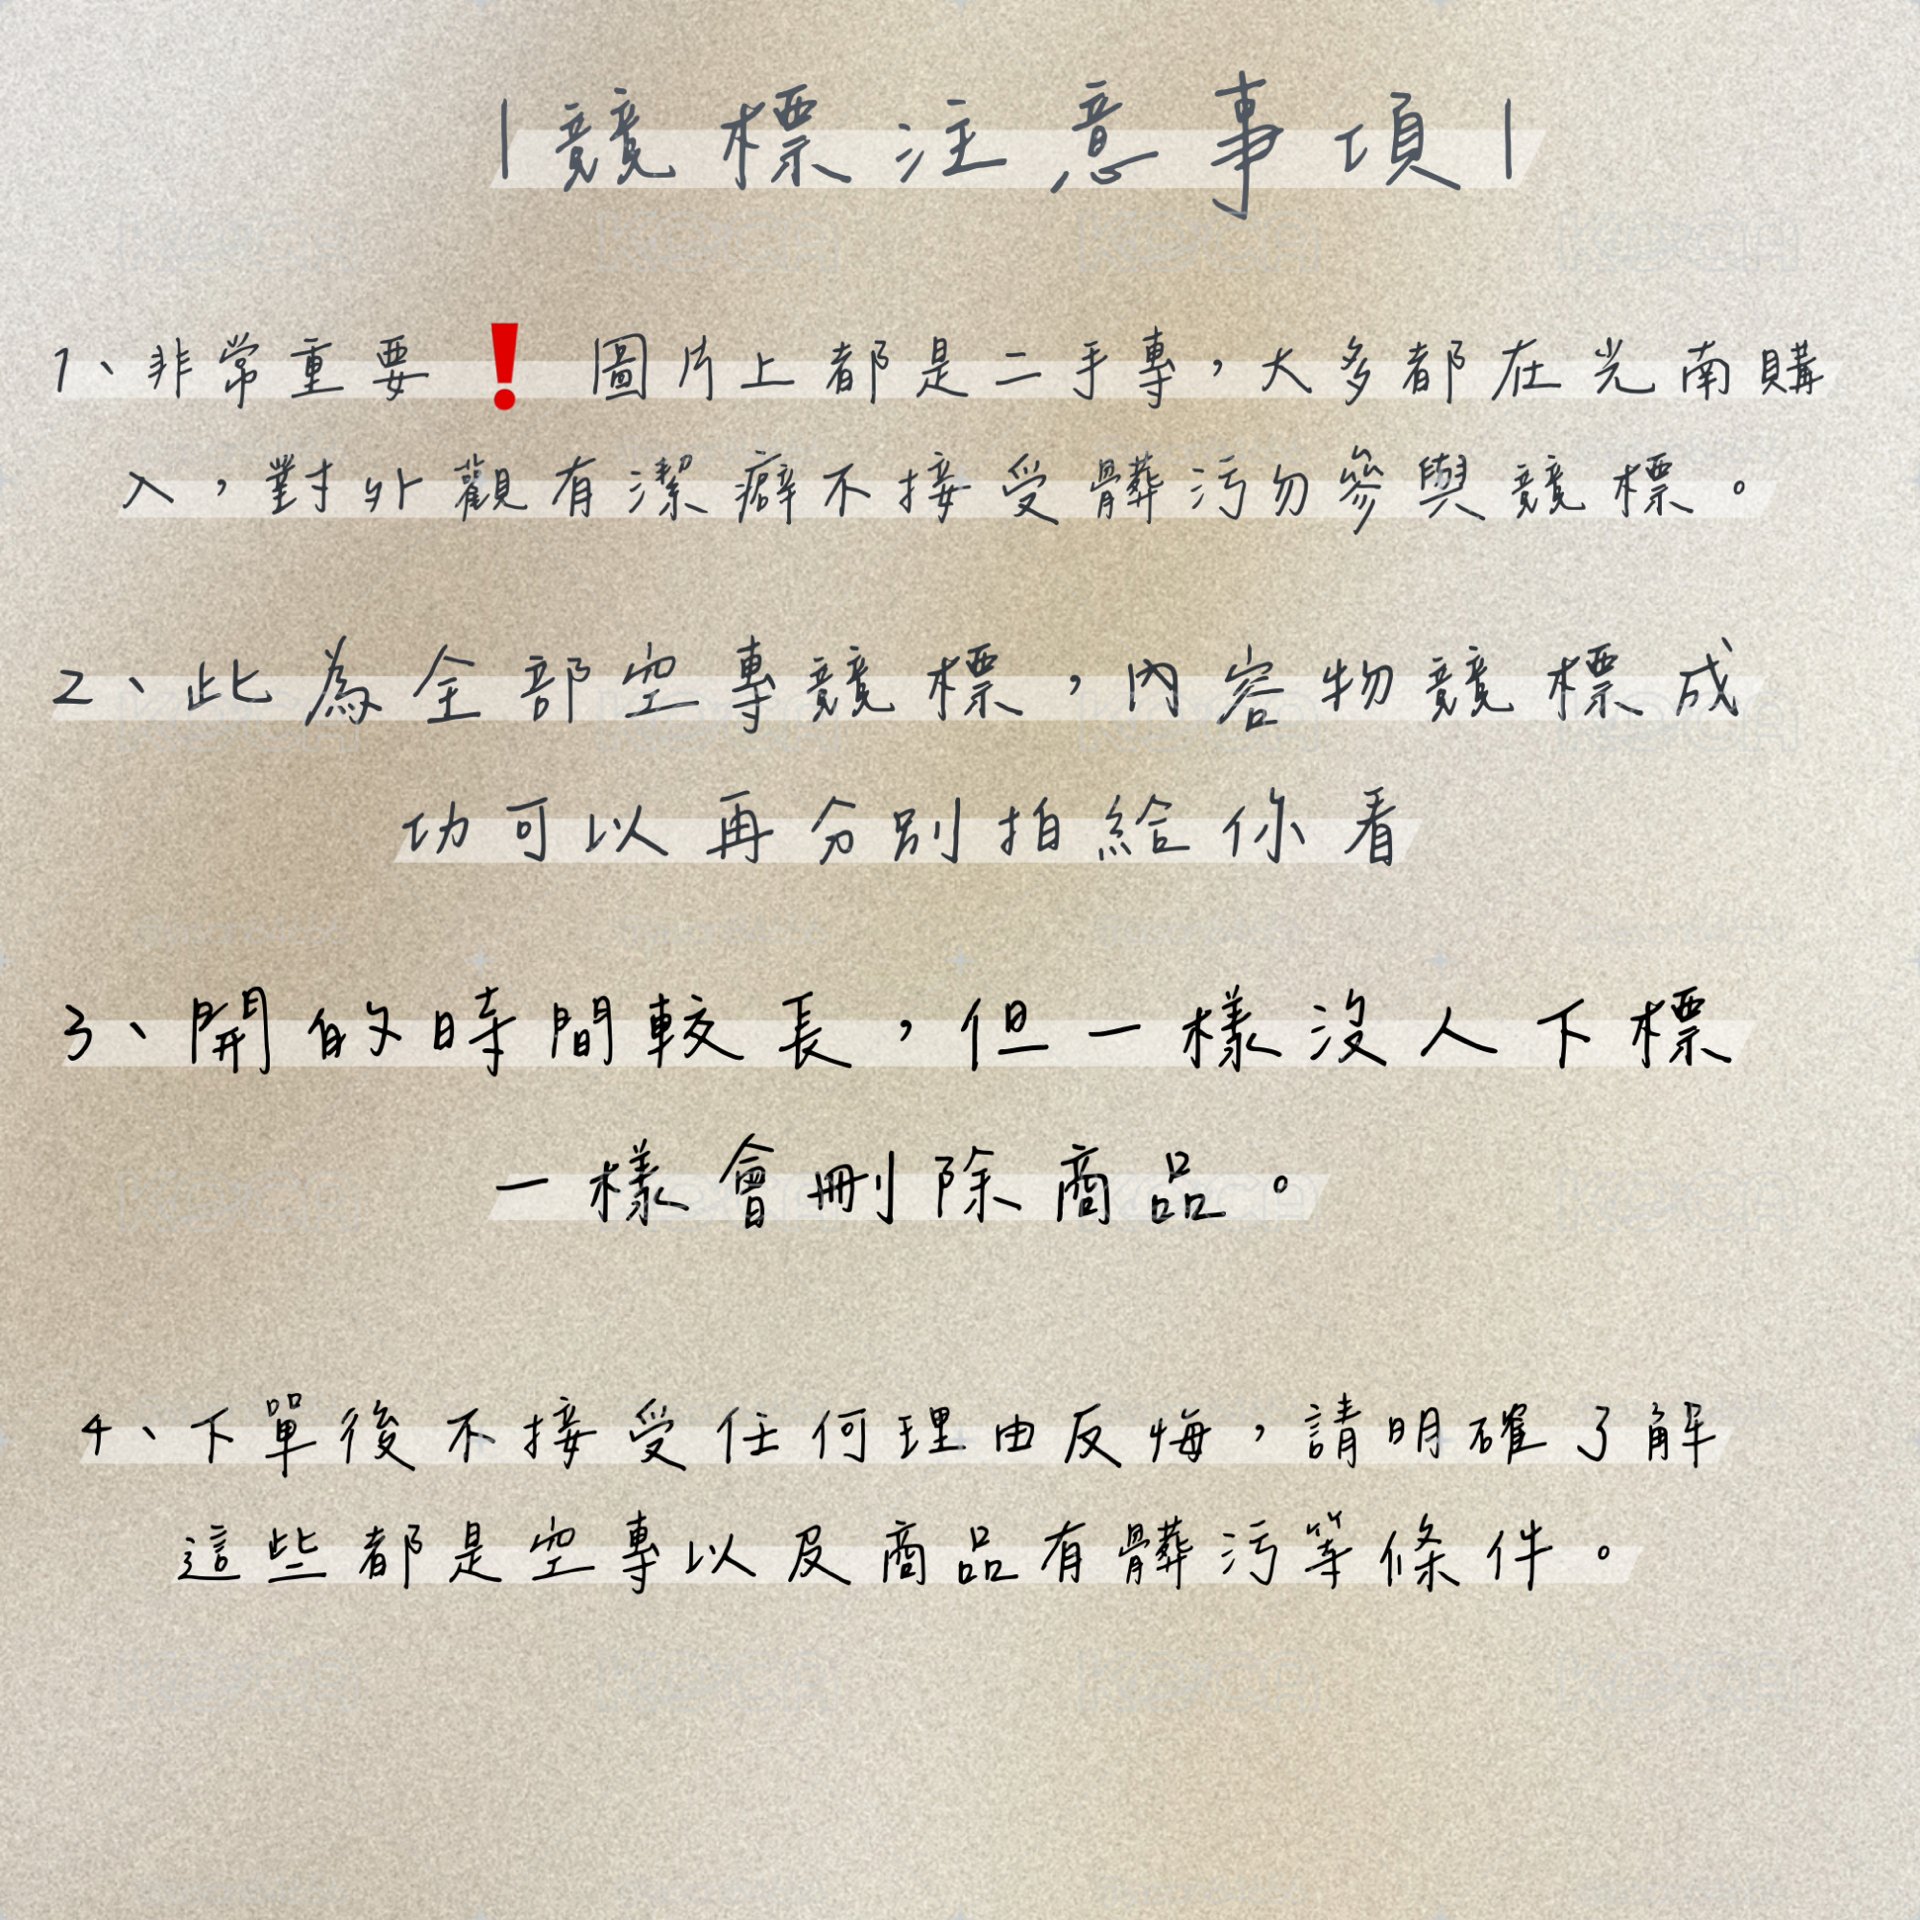 |競標注意事項|
1、非常重要❗圖片上都是二手專，大多都在光南購
入，對外觀有潔癖不接受髒污勿參與競標。
2、此為全部空專競標，內容物競標成
功可以再分別拍給你看
3、開的時間較長，但一樣沒人下標
一樣會刪除商品。
4、下單後不接受任何理由反悔，請明確了解
這些都是空專以及商品有髒污等條件。